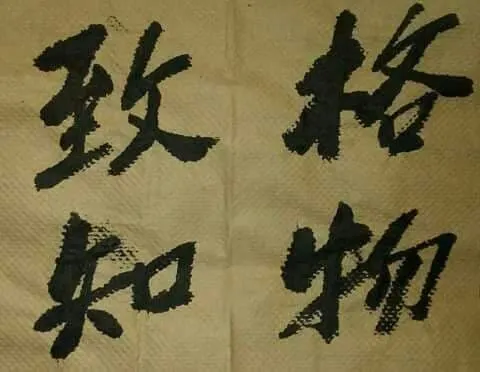 格物
致知